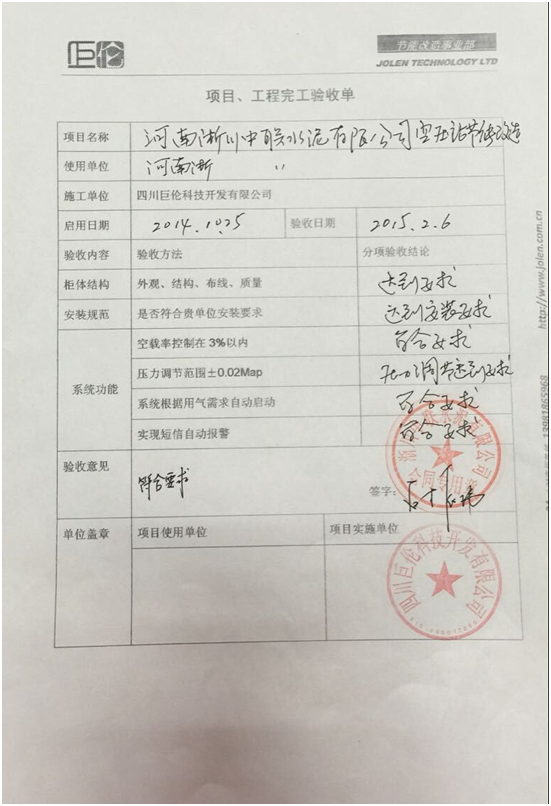 巨伦
节能改造事业部
JOLEN TECHNOLOGY LTD
项目、工程完工验收单
项目名称 河南淅川中联水泥有限公司空压站节能改造
使用单位 河南淅 〃
施工单位 四川巨伦科技开发有限公司
启用日期 2014.10.25 验收日期 2015.2.6
验收内容 验收方法 分项验收结论
柜体结构 外观、结构、布线、质量 达到要求
安装规范 是否符合贵单位安装要求 达到安装要求
系统功能
空载率控制在 3%以内 符合要求
压力调节范围±0.02Map 压力调节达到要求
系统根据用气需求自动启动 符合要求
实现短信自动报警 符合要求
验收意见 符合要求
签字:
合同专用章
单位盖章 项目使用单位 项目实施单位
四川巨伦科技开发有限公司
http://www.jolen.com.cn
13981865968